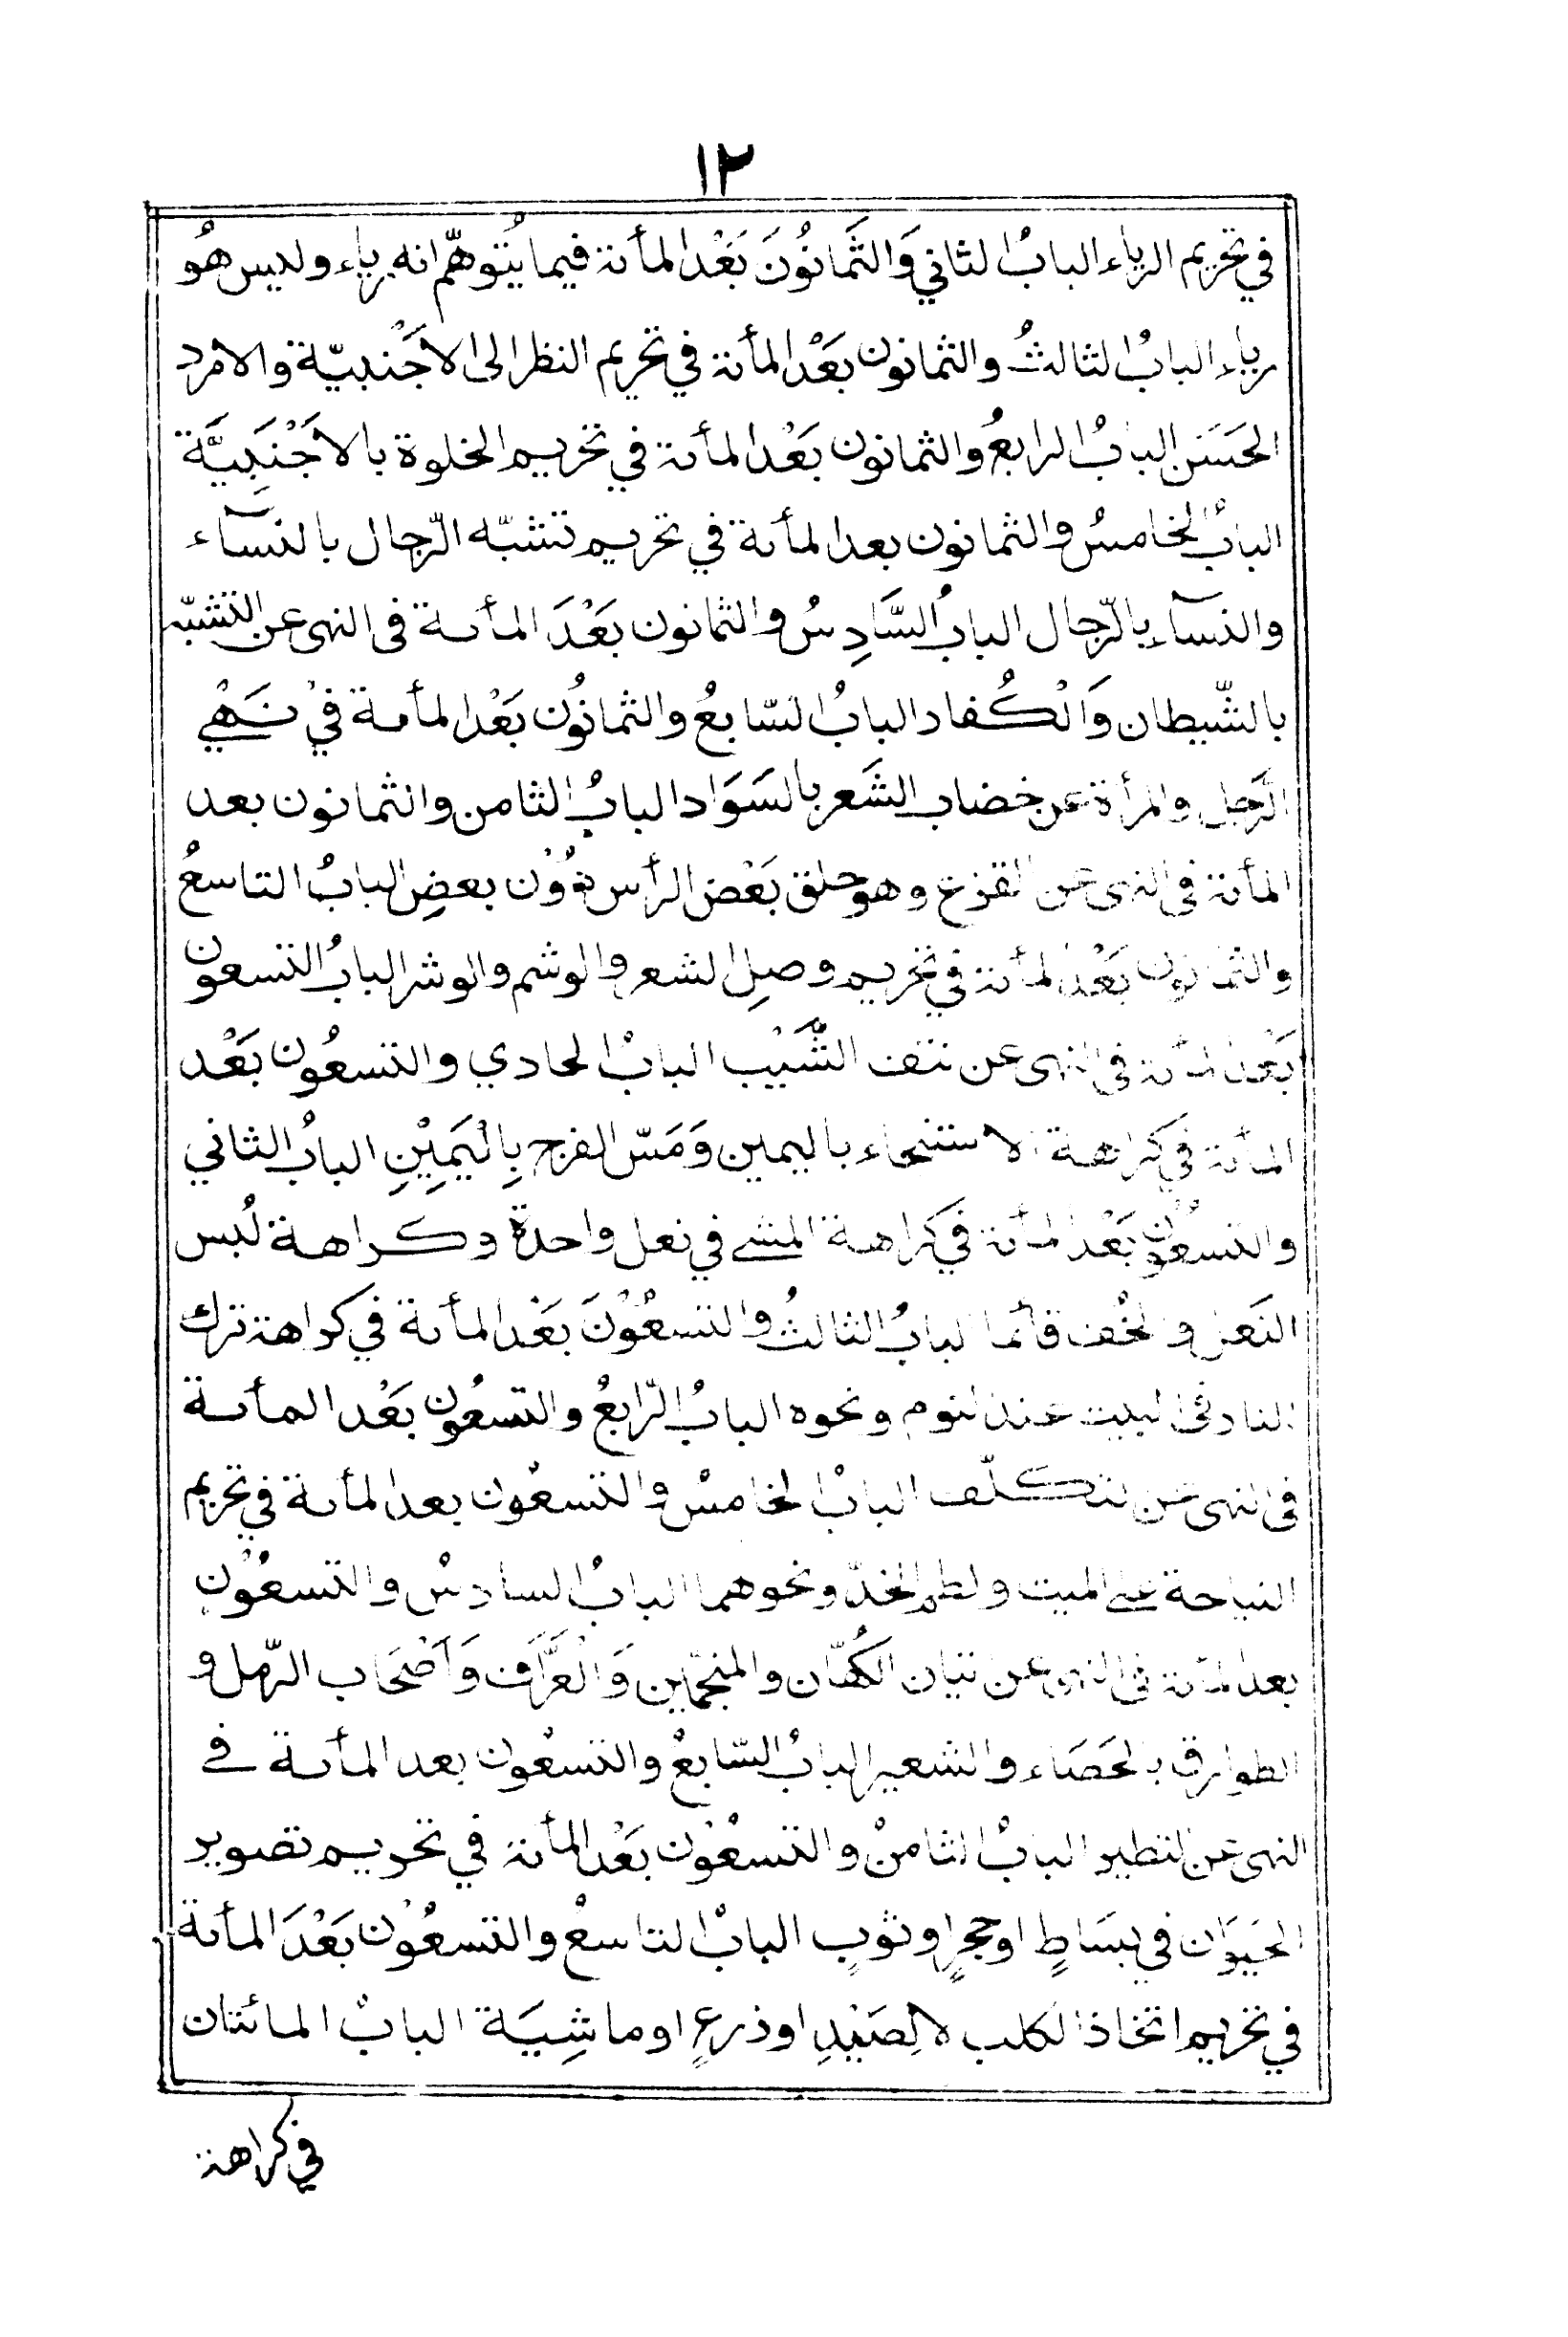 ١٢
في تحريم الرياء البابُ الثاني وَالثَمَانُونَ بَعْدَ المأئة فيما يُتوهّم انه رياء وليس هُو
رياء البابُ الثالثُ والثمانون بَعْدَ المأئة في تحريم النظر الى الاَجْنبيّة والامرد
الحَسَن البابُ الرابعُ والثمانون بَعْدَ المأئة في تحريم الخلوة بالاَجْنَبِيَّة
البابُ الخامسُ والثمانون بعد المأئة في تحريم تشبّه الرّجال بالنسآء
والنسآء بالرّجال البابُ السَّادِسُ والثمانون بَعْدَ المأئة فى النهى عن التشبّه
بالشّيطان وَالْكُفار البابُ السّابعُ والثمانوُن بَعْدَ المأئة فيْ نَهْيِ
الرَّجل والمرأة عن خضاب الشَعر بالسَوَاد البابُ الثامن والثمانون بعد
المأئة فى النهى عن القزع وهو حلق بَعْض الرأس دُوْن بعضِ البابُ التاسعُ
والثمانون بَعْدَ المأئة في تحريم وصلِ الشعر والوشم والوشر البابُ التسعون
بَعْدَ المأئة فى النهى عن نتف الشَّيْب البابُ الحادي والتسعُون بَعْد
المأئة في كراهة الاستنجاء باليمين وَمَسّ الفرج بِالْيَمِيْنِ البابُ الثاني
والتسعُون بَعْدَ المأئة في كراهة المشي في نعل واحدة وكراهة لُبس
النَعل والخُف قائما البابُ الثالثُ والتسعُوْنَ بَعْدَ المأئة في كراهة ترك
النار فى البيت عند النوم ونحوه البابُ الرّابعُ والتسعُون بَعْد المأئة
فى النهى عن التكلّف البابُ الخامسُ والتسعُون بعد المأئة في تحريم
النياحة على الميت ولطم الخدّ ونحوهما البابُ السادسُ والتسعُوْن
بعد المأئة فى النهى عن تيان الكُهّان والمنجمّين وَالْعَرَّاف وَاَصْحَاب الرّمل و
الطوارق بالحَصَاء والشعير البابُ السّابعُ والتسعُون بعد المأئة في
النهى عن التطير البابُ الثامنُ والتسعُوْن بَعْدَ المأئة في تحريم تصوير
الحَيَوَان في بسَاطٍ او حجرٍ او ثوبٍ البابُ التاسعُ والتسعُوْن بَعْدَ المأئة
في تحريم اتخاذ الكلب لا لِصَيْدِ او ذرعٍ او ماشِيَة البابُ المائتان
في كراهة